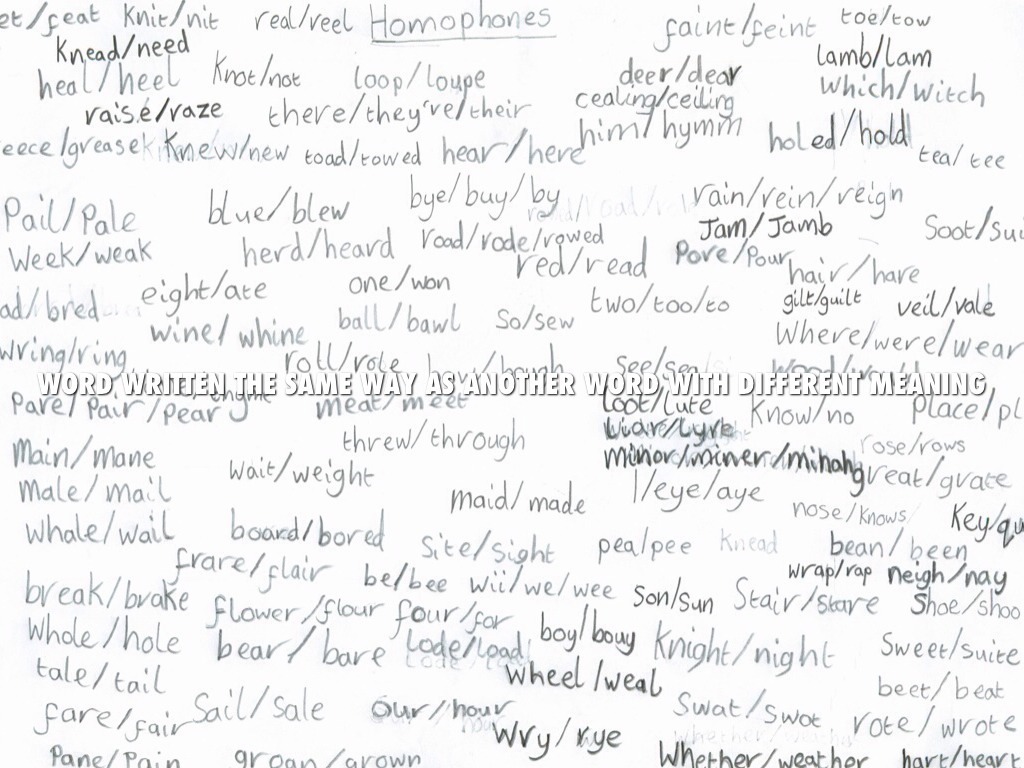 knit/nit real/reel Homophones faint/feint toe/tow
Knead/need lamb/lam
heal/heel Knot/not loop/loupe deer/dear which/witch
raise/raze there/they're/their cealing/ceiling
him/hymm holed/hold
Knew/new toad/towed hear/here tea/tee
Pail/Pale blue/blew bye/buy/by rain/rein/reign
Jam/Jamb
Week/weak herd/heard road/rode/rowed
red/read Pore/Pour hair/hare
eight/ate one/won two/too/to gilt/guilt veil/vale
wine/whine ball/bawl So/sew Where/were/wear
wring/ring roll/role
WORD WRITTEN THE SAME WAY AS ANOTHER WORD WITH DIFFERENT MEANING
Pare/Pair/Pear meat/meet loot/lute Know/no
Liar/Lyre
Main/mane threw/through rose/rows
wait/weight minor/miner/minah great/grate
Male/mail maid/made I/eye/aye
nose/knows
whale/wail board/bored Site/sight pea/pee Knead bean/been
frare/flair be/bee wii/we/wee wrap/rap neigh/nay
break/brake flower/flour four/for Son/Sun Stair/Stare
Whole/hole bear/bare Lode/load boy/bouy Knight/night Sweet/Suite
tale/tail wheel/weal beet/beat
fare/fair Sail/Sale Our/hour Swat/Swot rote/wrote
Wry/rye
Pane/Pain groan/grown Whether/weather hart/heart